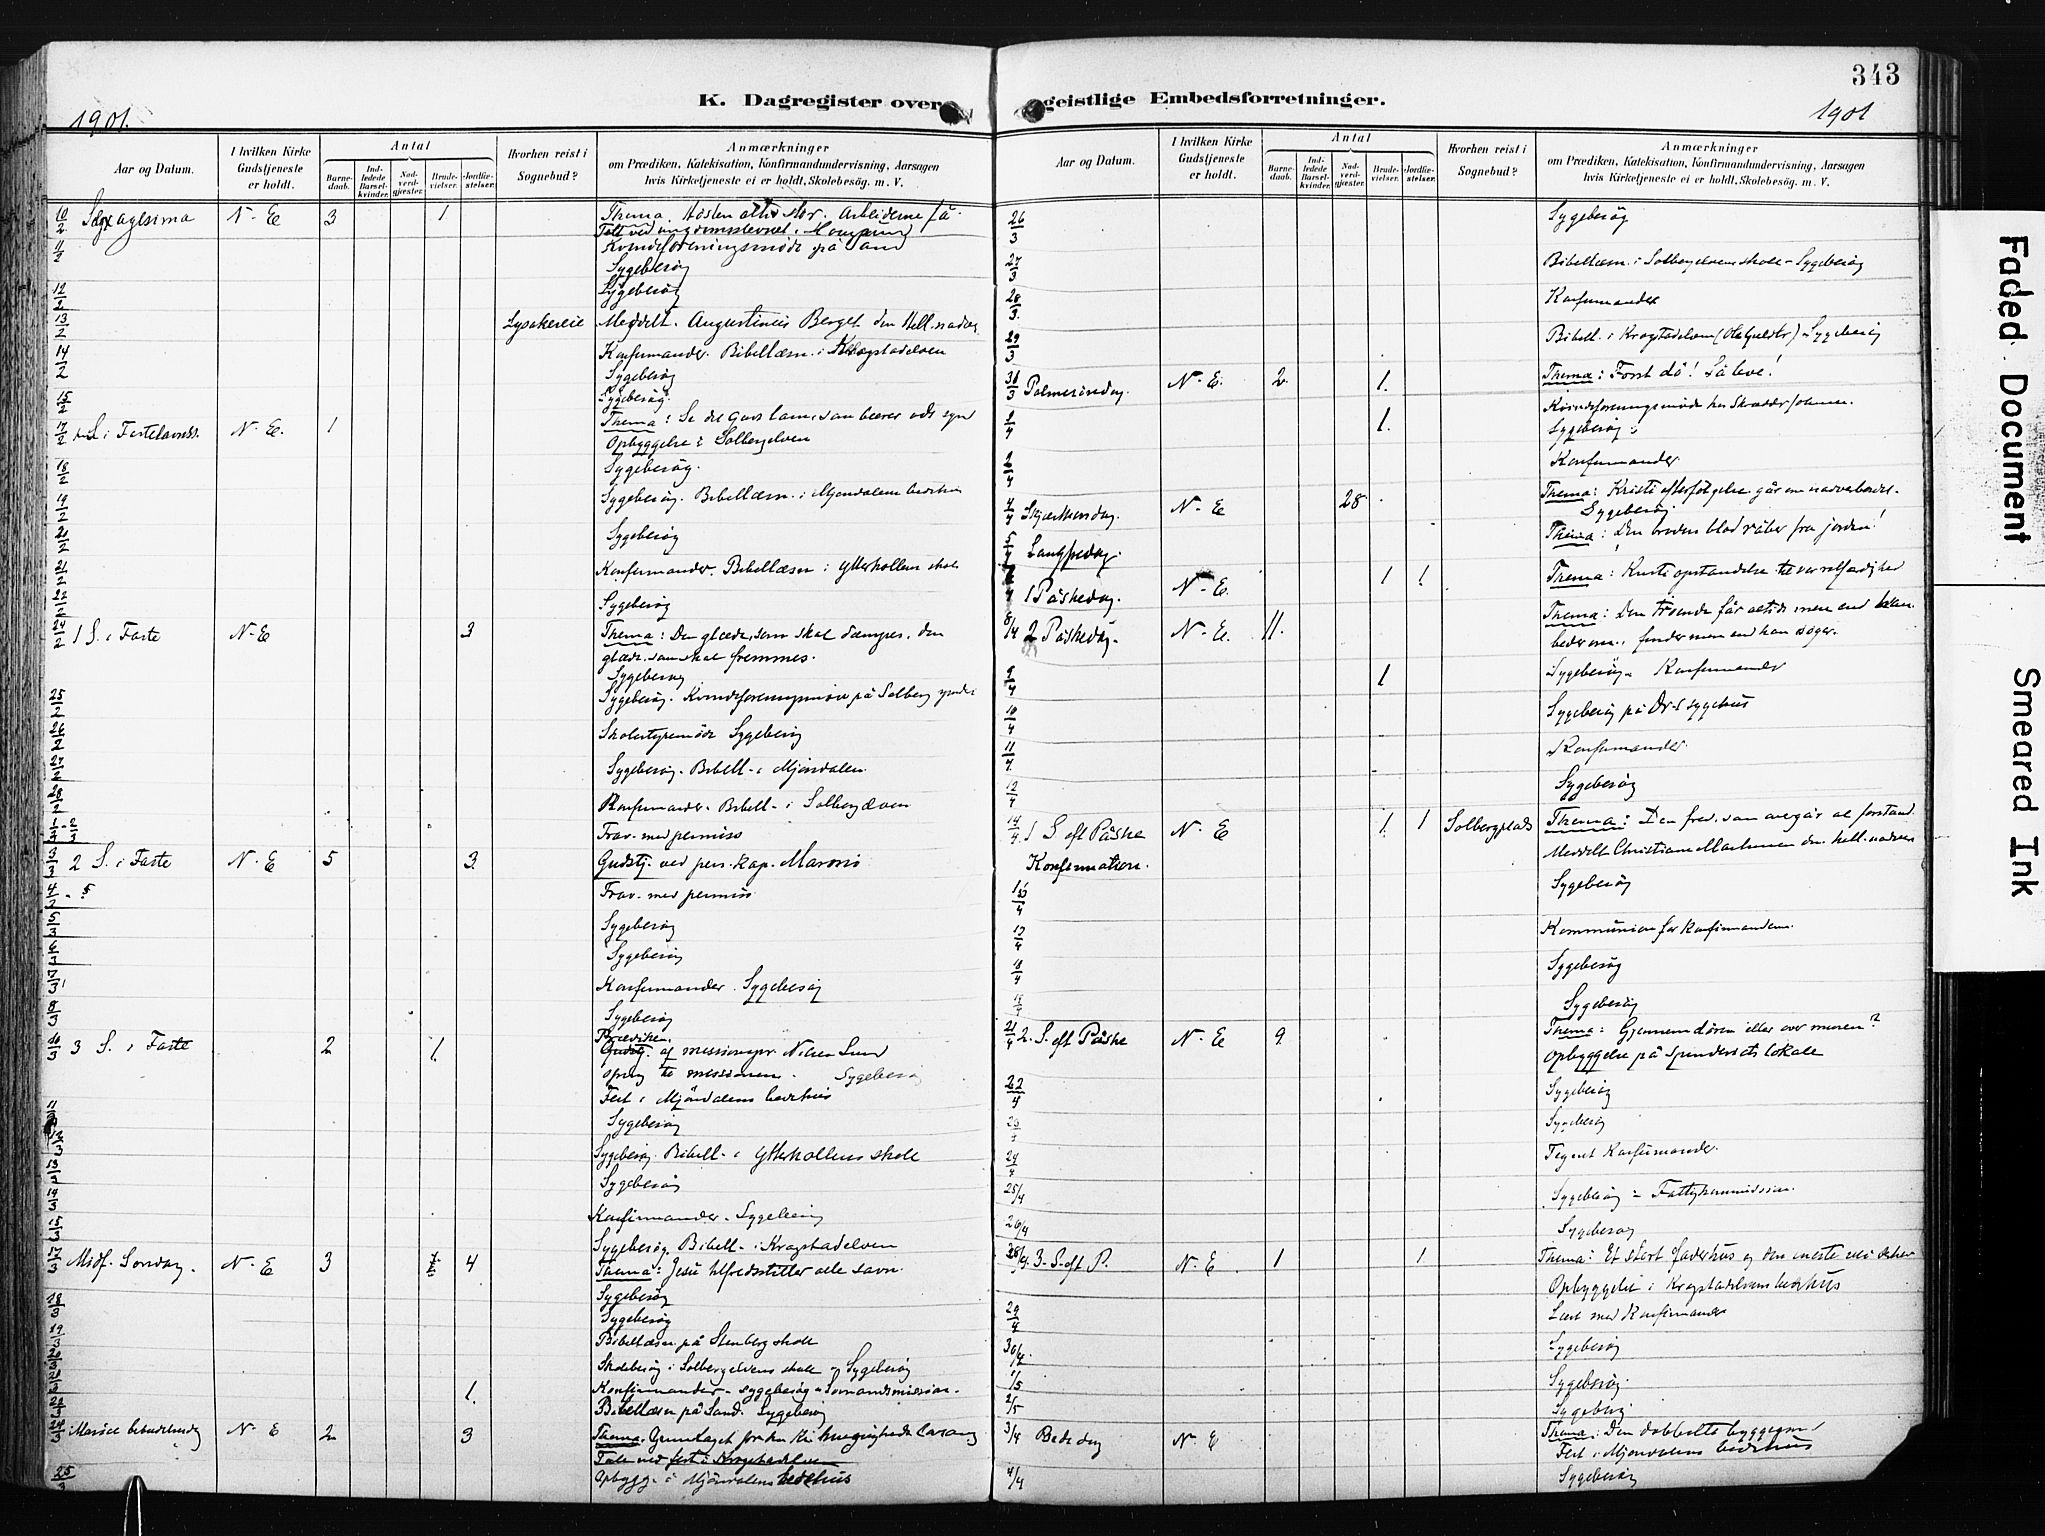 343
K. Dagregister over geistlige Embedsforretninger.
1901.
1901
Aar og Datum.
I hvilken Kirke Gudstjeneste er holdt.
Antal
Barnedaab.
Indledede Barselkvinder.
Nadverdgjester.
Brudevielser.
Jordfæstelser.
Hvorhen reist i Sognebud?
Anmærkninger
om Prædiken, Katekisation, Konfirmandundervisning, Aarsagen
hvis Kirketjeneste ei er holdt, Skolebesøg. m. V.
10/2 Sexagesima N. E 3 1 Thema. Høsten er stor. Arbeiderne få.
11/2 Kvindeforeningsmøde på Sand
Sygebesøg
12/2 Sygebesøg
13/2 Lysakereie Meddelt Augustinius Berget den Hell. nadver
14/2 Konfirmander. Bibellæsn. i Krogstadelven
Sygebesøg
15/2 Sygebesøg.
17/2 S. i Fastelavnss. N. E. 1 Thema: Se det Guds lam, som bærer vds synd
Opbyggelse i Solbergelven
18/2 Sygebesøg.
19/2 Sygebesøg. Bibellæsn. i Mjøndalens bedehus
20/2 Sygebesøg
21/2 Konfirmander. Bibellæsn i Ytterkollens skole
22/2 Sygebesøg
24/2 1 S. i Faste N. E 3 Thema: Den glæde, som skal dæmpes, den
glæde, som skal fremmes.
Sygebesøg
25/2 Sygebesøg. Kvindeforeningsmøde på Solberg
26/2 Skolestyremöde Sygebesøg
27/2 Sygebesøg. Bibell. i Mjøndalen.
28/2 Konfirmander. Bibell. i Solbergelven
1/3 - 2/3 Frav. med permiss
3/3 2 S. i Faste N. E 5 3 Gudstj. ved pers. kap.
4/3 Frav. med permiss
5/3 Sygebesøg
6/3 Sygebesøg
7/3 Konfirmander. Sygebesøg
8/3 Sygebesøg
10/3 3 S. i Faste 2 1 Prædiken
af missionspr. Nilsen Lund
til missionen. Sygebesøg
Fest i Mjöndalens bedehus
11/3 Sygebesøg
12/3 Sygebesøg. Bibell. i Ytterkollens skole
13/3 Sygebesøg
14/3 Konfirmander. Sygebesøg
15/3 Sygebesøg. Bibell. i Krogstadelven
17/3 Midf. Sondag. N. E 3 4 Thema: Jesu tilfredsstiller alle savn.
18/3 Sygebesøg
19/3 Sygebesøg
Bibellæsn. på Stenberg skole
20/3 Skolebesøg i Solbergelvens skole og Sygebesøg
21/3 1. Konfirmander. sygebesøg.
22/3 Bibellæsn på Sand. Sygebesøg
24/3 Mariæ bebudelsesdag N. E 2 3 Thema:
Tale ved fest i Krogstadelven
25/3 Opbygg. i Mjöndalens bedehus
26/3 Sygebesøg
27/3 Bibellæsn. i Solbergelvens skole. Sygebesøg
28/3 Konfirmander
29/3 Bibell. i Krogstadelven Sygebesøg
31/3 Palmesöndag. N. E. 2 1. Thema: Först dö! Så leve!
1/4 1. Kvindeforeningsmøde hos
Sygebesøg
2/4 Konfirmander
4/4 Skjærthorsdag. N. E 28 Thema: Kristi efterfølgelse går om nadverbordet.
Sygebesøg
5/4 Langfredag. Thema: Den broders blod råber fra jorden!
7/4 1 Påskedag. N. E. 1 1 Thema: Kristi opstandelse til vor retfærdighed
8/4 2 Påskedag. N. E. 11. Thema: Den troende får altid mere end han
beder om, finder mere end han søger.
9/4 1 Sygebesøg. Konfirmander
10/4 Sygebesøg på Dr-s sygehus
11/4 Konfirmander.
12/4 Sygebesøg
14/4 1 S. eft Påske N. E 1. 1 Solbergplads Thema: Den fred, som overgår al forstand
Konfirmation. Meddelt Christiane den hell. nadver
15/4 Sygebesøg
17/4 Kommunion for konfirmanderne.
18/4 Sygebesøg
19/4 Sygebesøg
21/4 2. S. eft Påske N. E 9. Thema: Gjennem dören eller over muren?
Opbyggelse på Spinderiets lokale
22/4 Sygebesøg
23/4 Sygebesøg
24/4 Tegnet Konfirmander.
25/4 Sygebesøg - Fattigkommission.
26/4 Sygebesøg
28/4 3. S. eft P. N. E 1 1 Thema: Et stort faderhus og den eneste vei
Opbyggelse i Krogstadelvens bedehus
29/4 Læst med Konfirmander
30/4 Sygebesøg
1/5 Sygebesøg.
2/5 Sygebesøg.
3/4 Bededag N. E Thema: Den dobbelte byggegrund
Fest i Mjøndalens bedehus
4/4 Sygebesøg
Faded Document
Smeared Ink